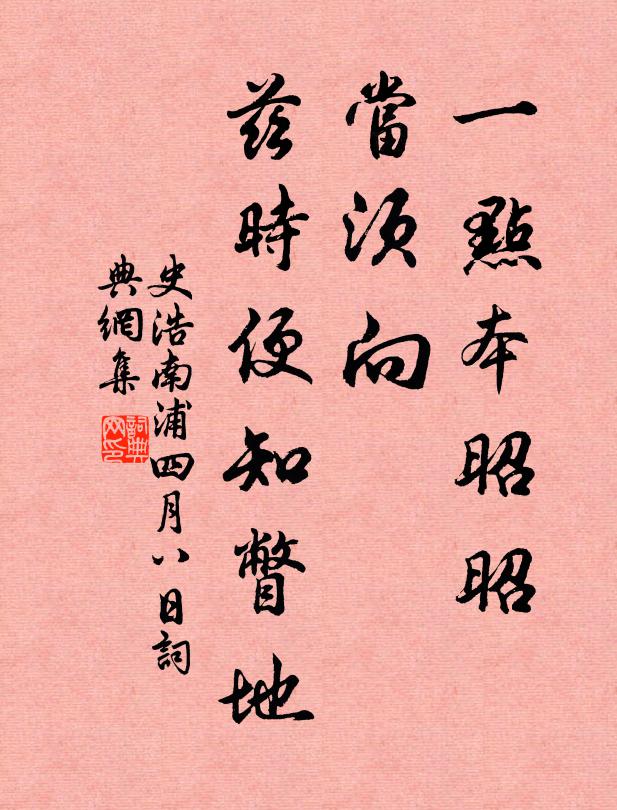 一點本昭昭
當須向
茲時便知瞥地
史浩南浦四月八日詞
典網集
詞典网印